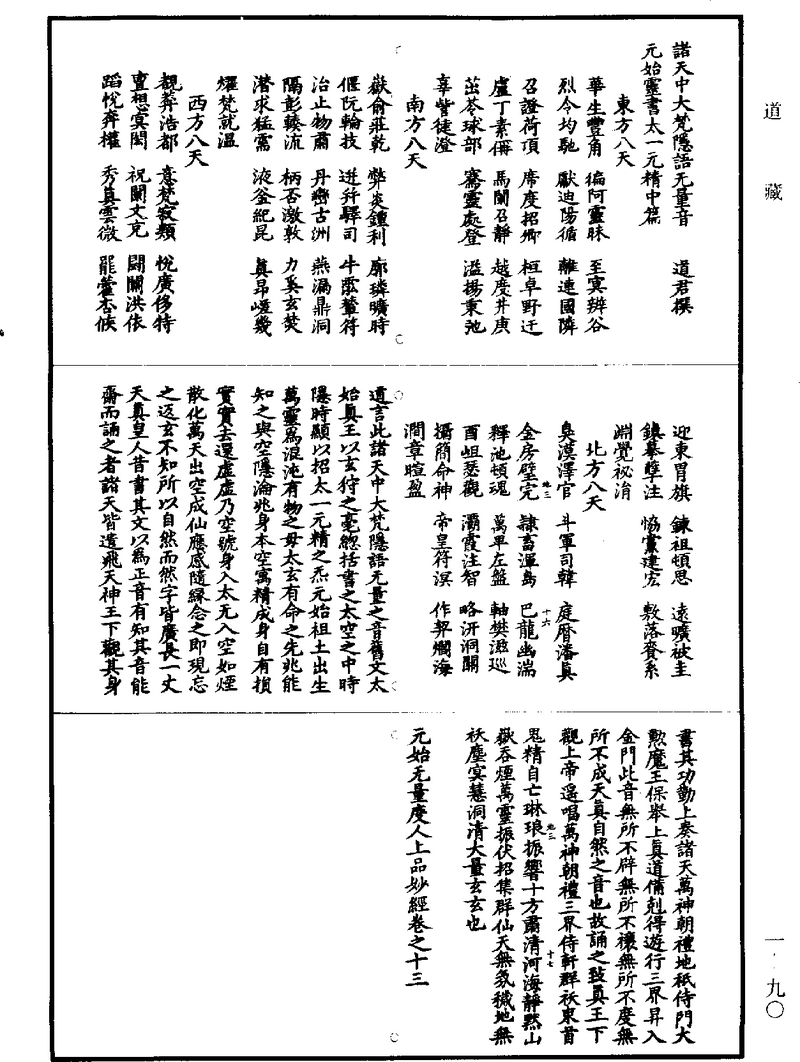 道藏
諸天中大梵隱語无量音
元始靈書太一元精中篇　道君撰
東方八天
華生豐角　徧阿靈昧　至冥辨谷
烈今均馳　獻迪陽循　離速國隣
召證荷頂　席度招卿　桓卓野迂
盧丁素傳　馬闌召靜　越度井庚
茁苓球部　騫靈處登　溢揚秉弛
辜訾徒澄
南方八天
嶽俞莊乾　弊炎鍾利　廓璘曠時
偃阮輪技　迸并驛司　牛
治止物肅　丹巒古洲　燕漏鼎洞
隔彭輳流　柄否激敦　力奚玄焚
潛求猛霈　液釜紀昆　真昂嵯幾
燿梵就溫
西方八天
覩葬浩都　意梵寂類　悅廣侈特
亶想冥閎　祝闌文克　闢闌洪依
蹈悅奔權　秀真雲微　罷藿杏候
迎東胃旗　錬祖頓思　遠曠被圭
鎮綦孽注　恊黨建宏　敷落賚系
淵覺祕湝
北方八天
臭漠澤官　斗軍司韓　庭曆潘真
金房壁完　隷畜渾島　巴龍幽湍
地三
十六
釋池頓魂　萬畢左盤　軸樊滋巡
酉岨瑟觀　灞霞注智　略汧洞關
攝簡命神　帝皇符溟　作契爛海
澗章暄盈
道言此諸天中大梵隱語无量之音舊文太
始真王以玄狩之毫總括書之太空之中時
隱時顯以招太一元精之炁元始祖土出生
萬靈爲混沌有物之母太玄有命之先兆能
知之與空隱淪兆身本空寓精成身自有損
實實去還虛虛乃空號身入太无入空如煙
散化萬天出空成仙應感隨緣念之即現忘
之返玄不知所以自然而然字皆廣長一丈
天真皇人昔書其文以爲正音有知其音能
齋而誦之者諸天皆遣飛天神王下觀其身
書其功勤上奏諸天萬神朝禮地祇侍門大
勳魔王保舉上真道備剋得遊行三界昇入
金門此音無所不辟無所不禳無所不度無
所不成天真自然之音也故誦之致真王下
觀上帝遥唱萬神朝禮三界侍軒群祅束首
鬼精自亡琳琅振響十方肅清河海靜默山
地三
十七
嶽吞煙萬靈振伏招集群仙天無氛穢地無
祅塵冥慧洞清大量玄玄也
元始无量度人上品妙經卷之十三
一·九〇